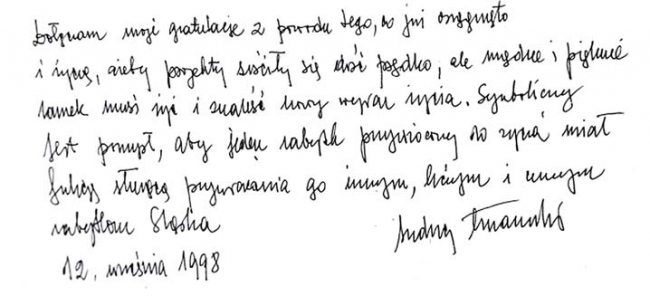 Dołączam moje gratulacje z powodu tego, co już osiągnięto
i życzę, ażeby projekty ziściły się dość prędko, ale mądrze i pięknie
zamek musi żyć i znaleść nowy wyraz życia. Symboliczny
jest pomysł, aby jeden zabytek przywrócony do życia miał
funkcję służącą przywracania go innym, licznym i cennym
zabytkom Śląska
Andrzej
12. września 1998